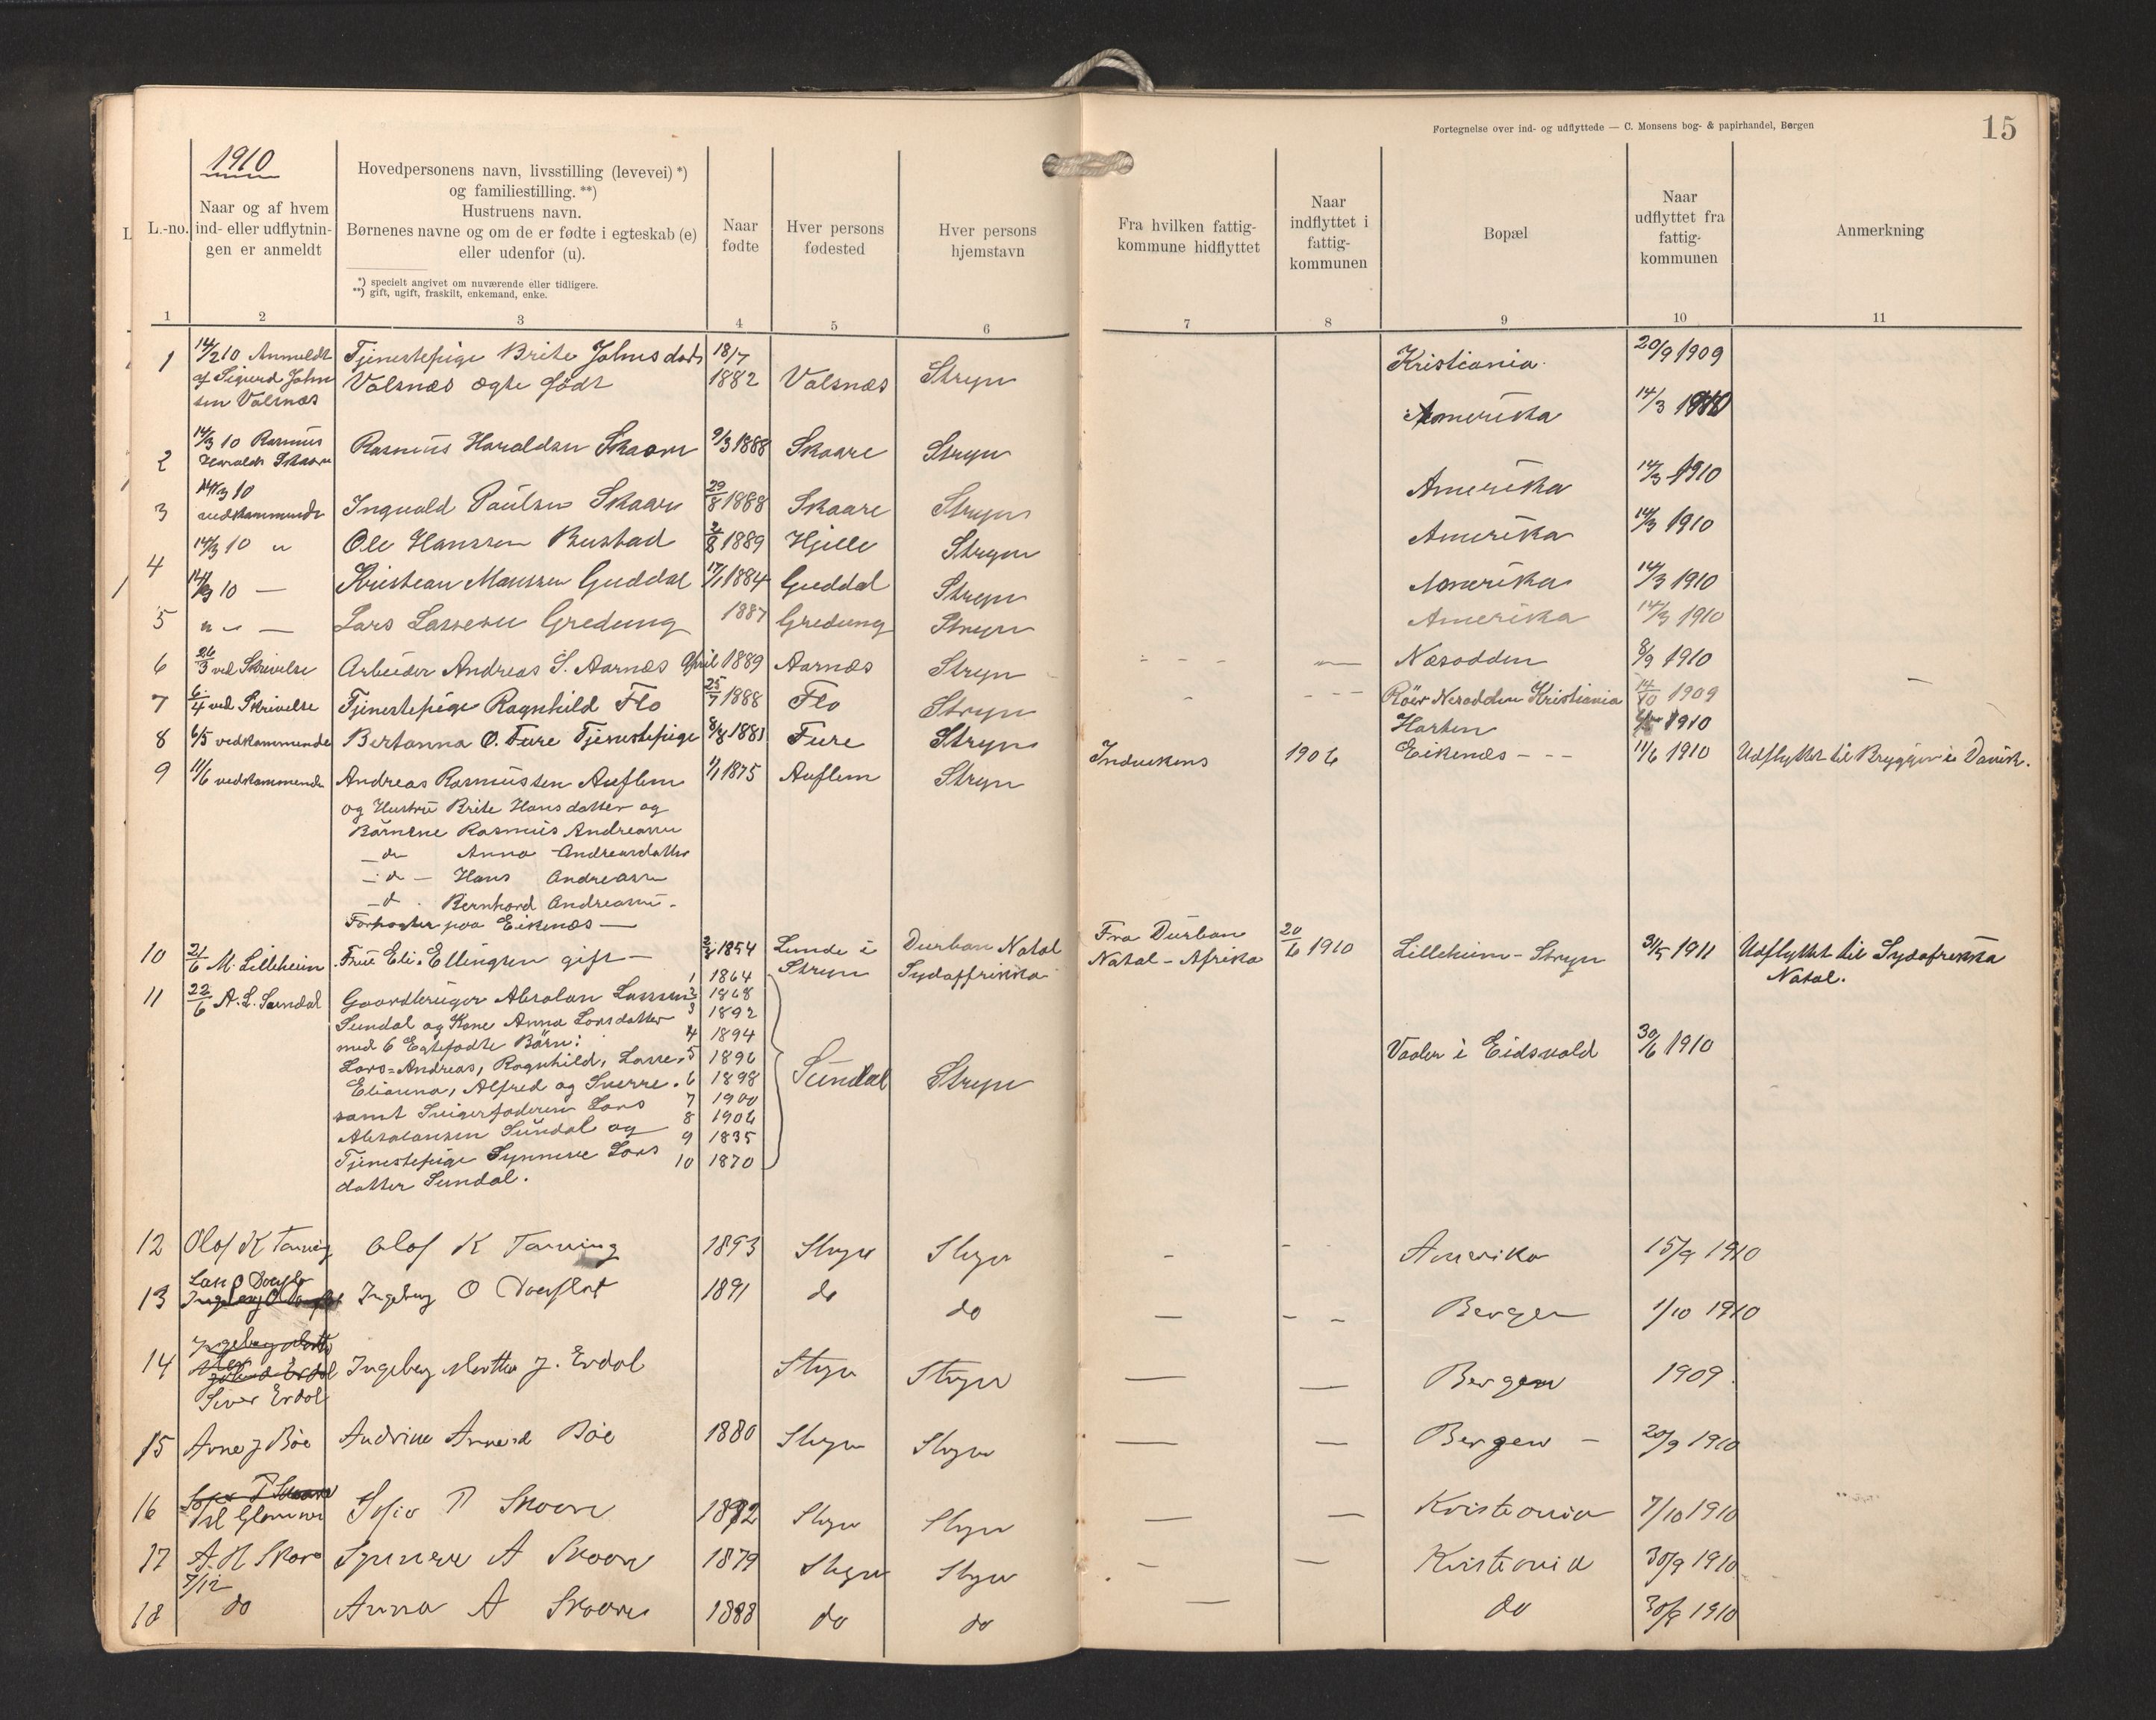 Fortegnelse over ind- og udflyttede — C. Monsens bog- & papirhandel, Bergen
15
1910
L.-no.
Naar og af hvem
ind- eller udflytnin-
gen er anmeldt
Hovedpersonens navn, livsstilling (levevei) *)
og familiestilling. **)
Hustruens navn.
Børnenes navne og om de er fødte i egteskab (e)
eller udenfor (u).
*) specielt angivet om nuværende eller tidligere.
**) gift, ugift, fraskilt, enkemand, enke.
Naar
fødte
Hver persons
fødested
Hver persons
hjemstavn
Fra hvilken fattig-
kommune hidflyttet
Naar
indflyttet i
fattig-
kommunen
Bopæl
Naar
udflyttet fra
fattig-
kommunen
Anmerkning
1 2 3 4 5 6 7 8 9 10 11
1 14/2 10 Anmeldt Tjenestepige Brite Johns datr 18/7 Kristiania. 20/9 1909
af Sigurd John Valsnæs ægte født 1882 Valsnæs Stryn
sen Valsnæs
Amerika 14/3 1910
2 14/3 10 Rasmus Rasmus Haraldsen Skaare 9/3 1888 Skaare Stryn
Haralds Skaare
Amerika 14/3 1910
3 14/3 10 Ingvald Paulsen Skaare 29/8 1888 Skaare Stryn
vedkommende
Amerika 14/3 1910
14/3 10 " Ole Hanssen Bustad 2/8 1889 Hjelle Stryn
4 14/3 10 — Kristian Monssen Guddal 17/1 1884 Guddal Stryn Amerika 14/3 1910
5 " " — Lars Larsen Gredung 1887 Gredung Stryn Amerika 14/3 1910
6 26/3 ved Skrivelse Arbeider Andreas S. Aarnæs April 1889 Aarnæs Stryn - - - — Næsodden 8/9 1910
7 6/4 ved Skrivelse Tjenestepige Ragnhild Flo 25/7 1888 Flo Stryn - - - - Röer Nesodden Kristiania 14/10 1909 —
8 6/5 vedkommende Bertanna O. Fure Tjenestepige 8/8 1883 Fure Stryn Horten 1910
9 11/6 vedkommende Andreas Rasmussen Auflem 1/1 1875 Auflem Stryn Indviken 1906 Eikenæs - - - 11/6 1910 Udflyttet til Bryggen i Davik.
og Hustru Brite Hansdatter og
Börnene Rasmus Andreassen
— do Anna Andreasdatter
— d — Hans Andreassen
— d. Bernhard Andreassen.
Forpagter paa Eikenæs —
10 21/6 M. Lilleheim Frue Eli Ellingsen gift — 1854 Lunde i Durban Natal Fra Durban 20/6 1910 Lilleheim - Stryn 31/5 1911 Udflyttet til Sydafrikka
Stryn Sydaffrikka Natal - Afrika Natal.
1 1864
11 22/6 A. L. Sundal Gaardbruger Absalon Larssen 2 1868
Sundal og Kone Anna Larsdatter 3 1892
med 6 Egtefødte Börn: 4 1894
Lars-Andreas, Ragnhild, Lasse, 5 1896 Vaaler i Eidsvold 30/6 1910
Elianna, Alfred og Sverre. 6 1898 Sundal Stryn
samt Svigerfaderen Lars 7 1900
Absalonsen Sundal og 8 1906
Tjenestepige Synneve Lars 9 1835
datter Sundal. 10 1870
12 Olof K Tarning Olof K Tarning 1893 Stryn Stryn - - Amerika 15/9 1910
Lars O
13 Ingeborg O 1891 do do — - - Bergen 1/10 1910
14 Ingeborg Marthe J. Erdal Stryn Stryn — — Bergen 1909.
Siver Erdal
15 Arne J Böe Andrine Arnesd Böe 1880 Stryn Stryn — — Bergen — 20/9 1910
16 Sofie P Skaare 1882 Stryn Stryn — — Kristiania 7/10 1910
17 A. H Skare Synneve A Skaare 1879 Stryn Stryn - — Kristiania 30/9 1910
7/12
18 do Anna A Skaare 1888 do do — do 30/9 1910